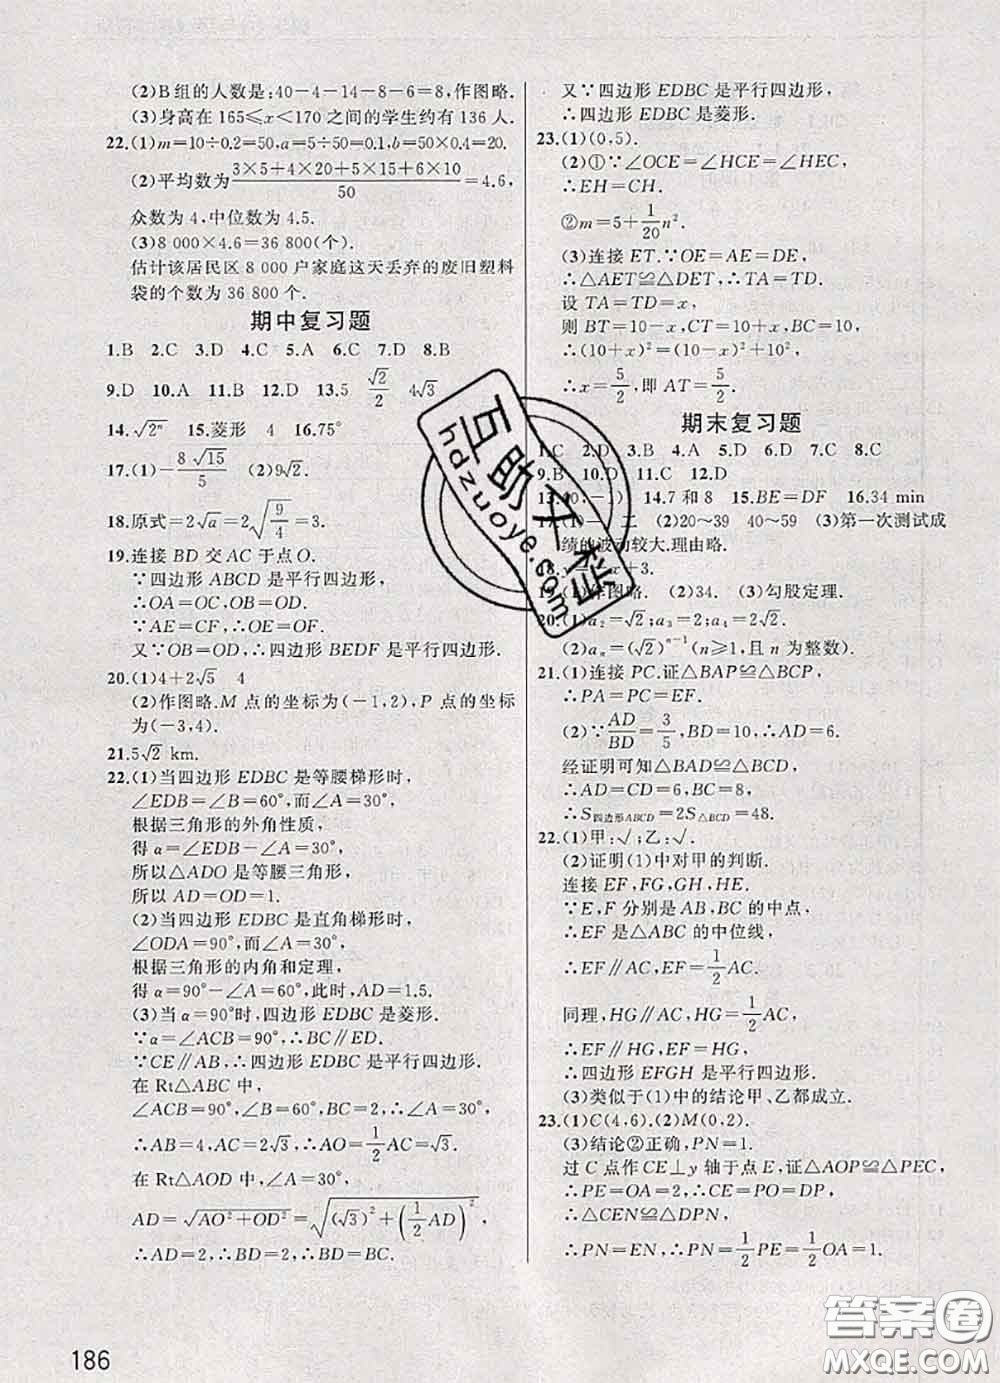 (2)B组的人数是:40-4-14-8-6=8,作图略.
(3)身高在 165≤x<170 之间的学生约有 136 人.
22.(1)m=10÷0.2=50,a=5÷50=0.1,b=50×0.4=20.
(2)平均数为(3×5+4×20+5×15+6×10)/50=4.6,
众数为 4,中位数为 4.5.
(3)8 000×4.6=36 800(个).
估计该居民区 8 000 户家庭这天丢弃的废旧塑料
袋的个数为 36 800 个.
期中复习题
1.B 2.C 3.D 4.C 5.A 6.C 7.D 8.B
9.D 10.A 11.B 12.D 13.5 √2/2 4√3
14.√2ⁿ 15.菱形 4 16.75°
17.(1)-8√15/5 (2)9√2.
18.原式=2√a=2√(9/4)=3.
19.连接 BD 交 AC 于点 O.
∵四边形 ABCD 是平行四边形,
∴OA=OC,OB=OD.
∵AE=CF,∴OE=OF.
又∵OB=OD,∴四边形 BEDF 是平行四边形.
20.(1)4+2√5 4
(2)作图略.M 点的坐标为(-1,2),P 点的坐标
为(-3,4).
21.5√2 km.
22.(1)当四边形 EDBC 是等腰梯形时,
∠EDB=∠B=60°,而∠A=30°,
根据三角形的外角性质,
得 α=∠EDB-∠A=30°,
所以△ADO 是等腰三角形,
所以 AD=OD=1.
(2)当四边形 EDBC 是直角梯形时,
∠ODA=90°,而∠A=30°,
根据三角形的内角和定理,
得 α=90°-∠A=60°,此时,AD=1.5.
(3)当 α=90°时,四边形 EDBC 是菱形.
∵α=∠ACB=90°,∴BC∥ED.
∵CE∥AB,∴四边形 EDBC 是平行四边形.
在 Rt△ABC 中,
∠ACB=90°,∠B=60°,∠A=30°,
∴AB=4,AC=2√3,∴AO=1/2AC=√3.
在 Rt△AOD 中,
AD=√(AO²+OD²)=√((√3)²+(1/2AD)²),
∴AD=2,∴BD=2,∴BD=BC.
186
又∵四边形 EDBC 是平行四边形,
∴四边形 EDBC 是菱形.
23.(1)(0,5).
(2)①∵∠OCE=∠HCE=∠HEC,
∴EH=CH.
②m=5+1/20n².
(3)连接 ET.∵OE=AE=DE,
∴△AET≌△DET,∴TA=TD.
设 TA=TD=x,
则 BT=10-x,CT=10+x,BC=10,
∴(10+x)²=(10-x)²+10²,
∴x=5/2,即 AT=5/2.
期末复习题
1.C 2.D 3.B 4.A 5.C 6.D 7.D 8.C
9.B 10.D 11.C 12.D
14.7 和 8 15.BE=DF 16.34 min
17.(1)一 二 (2)20～39 40～59 (3)第一次测试成
绩的波动较大.理由略.
+3.
19.(1)作图略. (2)34. (3)勾股定理.
20.(1)a₂=√2;a₃=2;a₄=2√2.
(2)aₙ=(√2)ⁿ⁻¹(n≥1,且 n 为整数).
21.(1)连接 PC.证△BAP≌△BCP,
∴PA=PC=EF.
(2)∵AD/BD=3/5,BD=10,∴AD=6.
经证明可知△BAD≌△BCD,
∴AD=CD=6,BC=8,
∴S四边形ABCD=2S△BCD=48.
22.(1)甲:√;乙:√.
(2)证明(1)中对甲的判断.
连接 EF,FG,GH,HE.
∵E,F 分别是 AB,BC 的中点,
∴EF 是△ABC 的中位线,
∴EF∥AC,EF=1/2AC.
同理,HG∥AC,HG=1/2AC,
∴EF∥HG,EF=HG,
∴四边形 EFGH 是平行四边形.
(3)类似于(1)中的结论甲、乙都成立.
23.(1)C(4,6).(2)M(0,2).
(3)结论②正确,PN=1.
过 C 点作 CE⊥y 轴于点 E,证△AOP≌△PEC,
∴PE=OA=2,∴CE=PO=DP,
∴△CEN≌△DPN,
∴PN=EN,∴PN=1/2PE=1/2OA=1.
互助文档
hdzuoye.com
答案卷
MXQE.COM